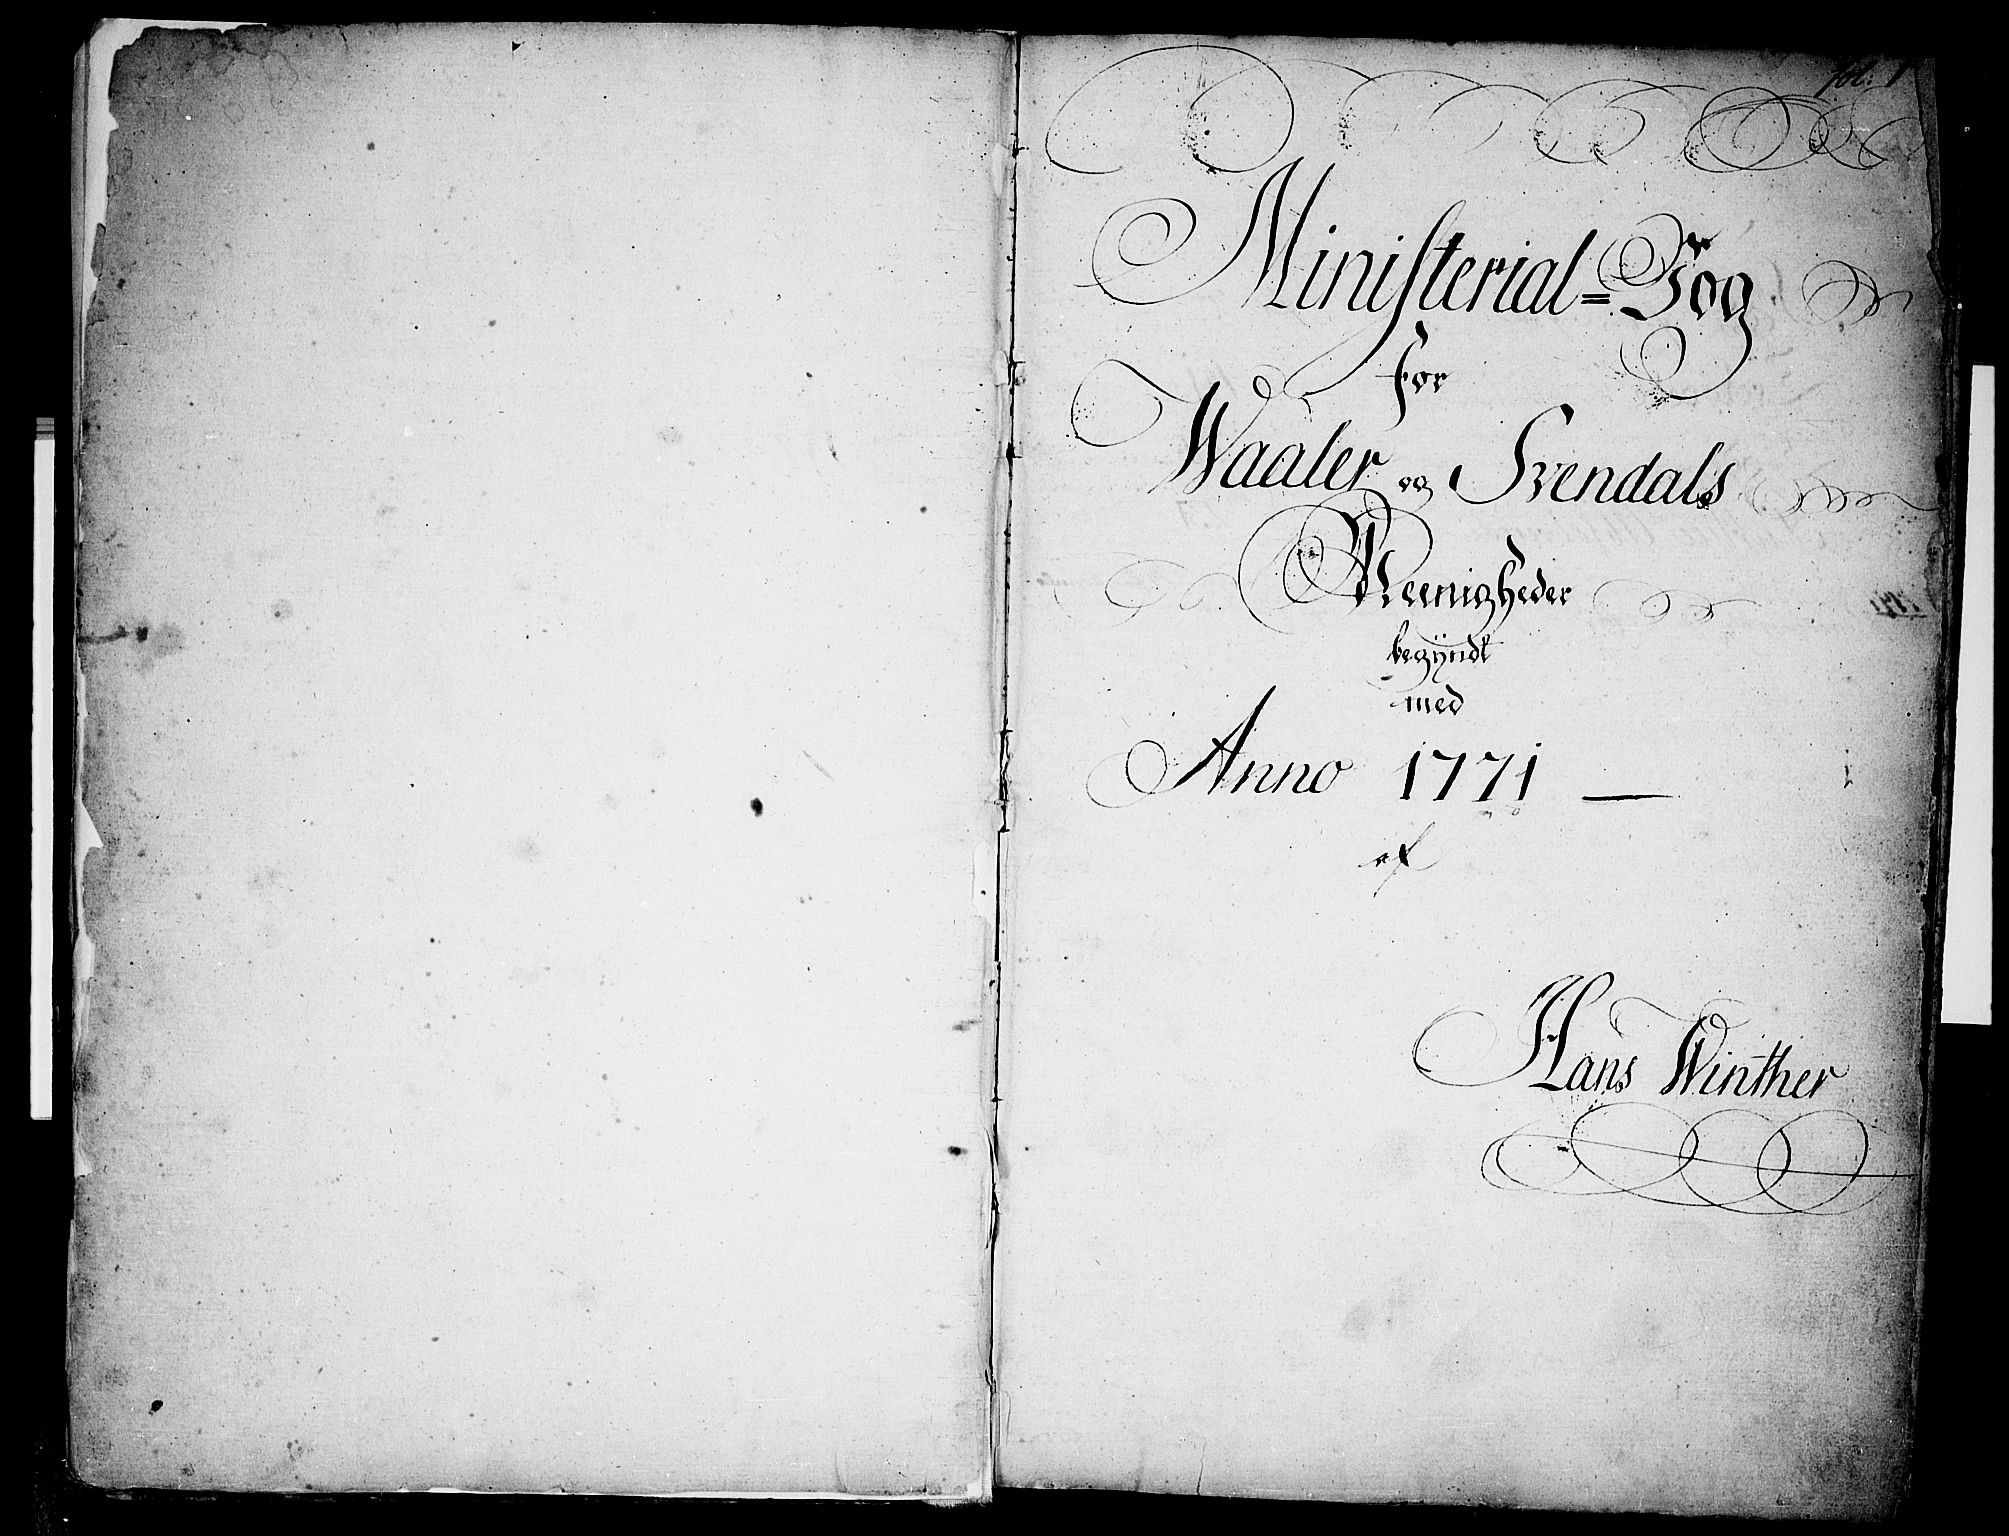 fol: 1
Ministerial=Bog
for
Waaler og Svendals
Meenigheder
begÿndt
med
Anno 1771
af
Hans Winther